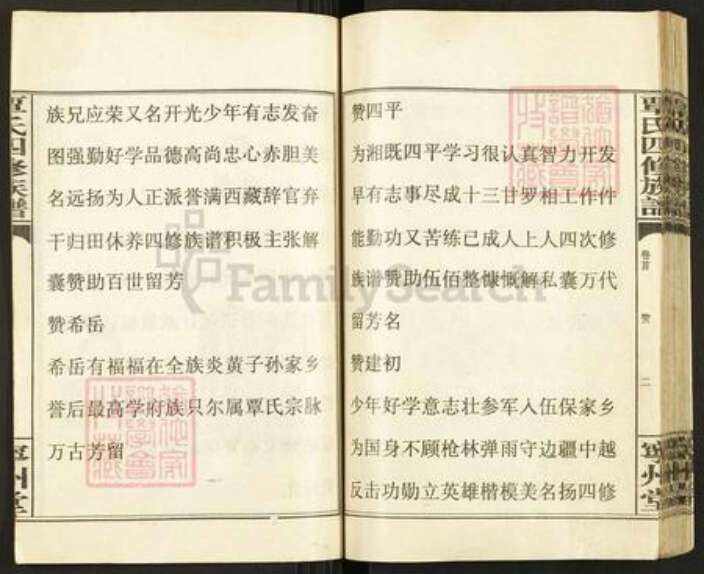 族兄应荣又名开光少年有志发奋
图强勤好学品德高尚忠心赤胆美
名远扬为人正派誉满西藏辞官弃
干归田休养四修族谱积极主张解
囊赞助百世留芳
赞希岳
希岳有福福在全族炎黄子孙家乡
誉后最高学府族只尔属覃氏宗脉
万古芳留
赞四平
为湘既四平学习很认真智力开发
早有志事尽成十三廿罗相工作件
能勤功又苦练已成人上人四次修
族谱赞助伍佰整慷慨解私囊万代
留芳名
赞建初
少年好学意志壮参军入伍保家乡
为国身不顾枪林弹雨守边疆中越
反击功勋立英雄楷模美名扬四修
覃氏四修族谱
卷首
赞
二
FamilySearch